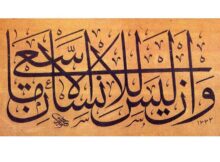 وأن ليس للإنسان إلا ما سعى